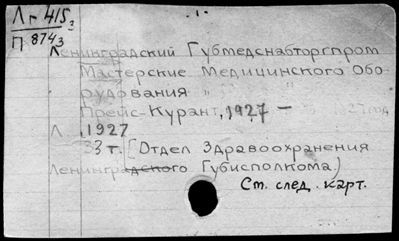 Лг 415
П 8743
-1-
Ленинградский Губмедснабторгпром
Мастерские Медицинского Обо
рудования
Прейс-Курант, 1927 —
Л. 1927
33 т. [Отдел Здравоохранения
Ленинградского Губисполкома.]
См. след. карт.